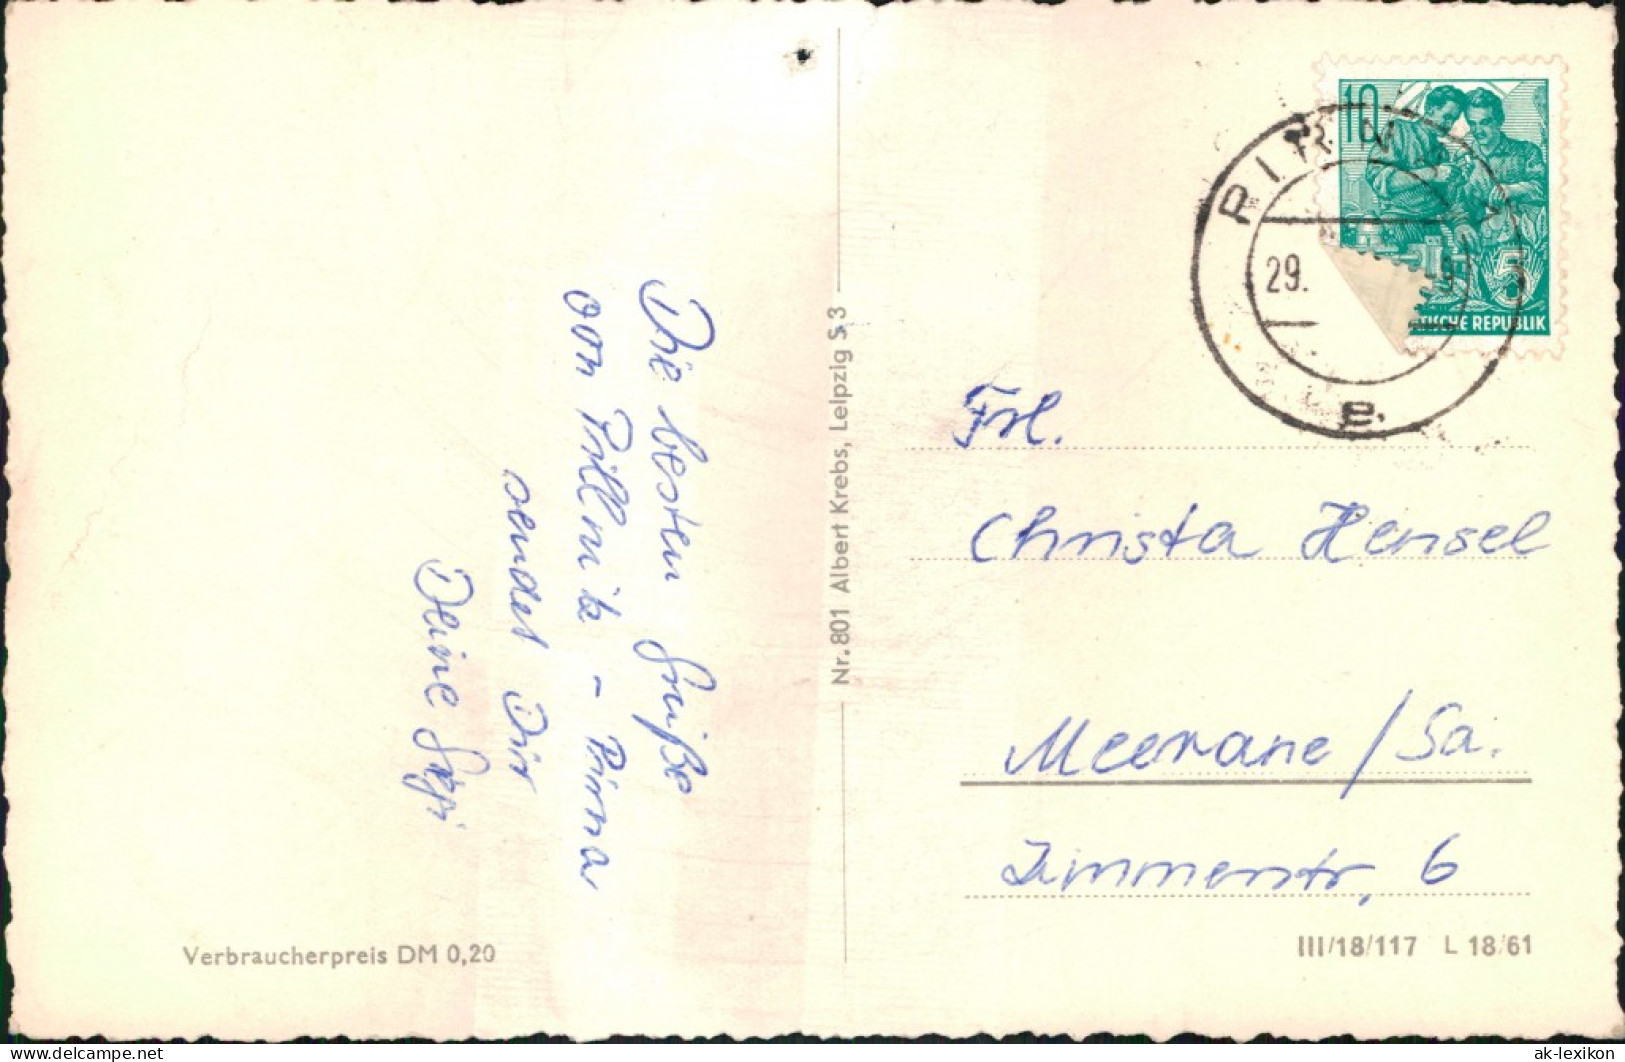 Die besten Grüße
von Pillnitz - Pirna
sendet Dir
Deine
Nr. 801 Albert Krebs, Leipzig S 3
Verbraucherpreis DM 0,20
10
5
TISCHE REPUBLIK
PIRNA
29.
-9
e
Frl.
Christa Hensel
Meerane/Sa.
Zimmerstr. 6
III/18/117 L 18/61
www.delcampe.net
ak-lexikon